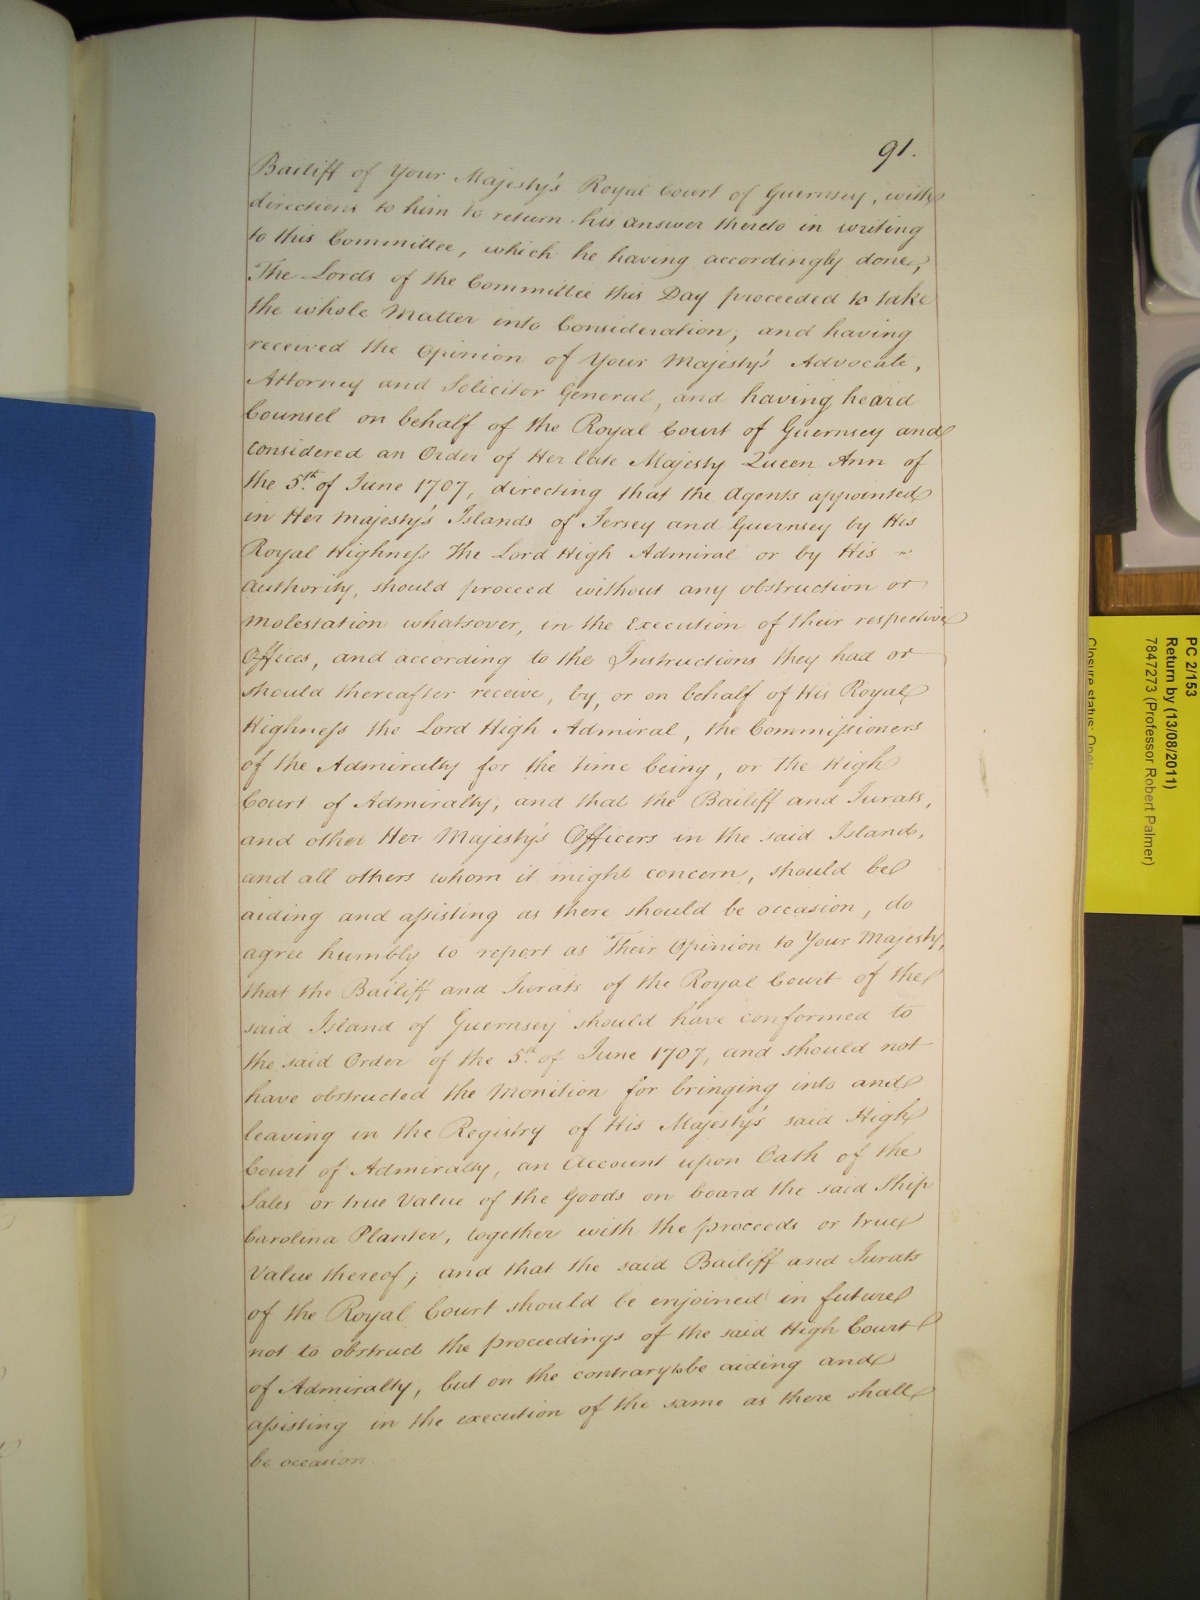 91.
Bailiff of Your Majesty's Royal Court of Guernsey, with
directions to him to return his answer thereto in writing
to this Committee, which he having accordingly done,
The Lords of the Committee this Day proceeded to take
the whole Matter into Consideration, and having
received the Opinion of Your Majesty's Advocate,
Attorney and Solicitor General, and having heard
Counsel on behalf of the Royal Court of Guernsey and
considered an Order of Her late Majesty Queen Ann of
the 5th. of June 1707, directing that the Agents appointed
in Her Majesty's Islands of Jersey and Guernsey by His
Royal Highness The Lord High Admiral or by His ~
Authority, should proceed without any obstruction or
Molestation whatsover, in the Execution of their respective
Offices, and according to the Instructions they had or
should thereafter receive, by, or on behalf of His Royal
Highness the Lord High Admiral, the Commissioners
of the Admiralty for the time being, or the High
Court of Admiralty, and that the Bailiff and Jurats,
and other Her Majesty's Officers in the said Island,
and all others whom it might concern, should be
aiding and assisting as there should be occasion, do
agree humbly to report as Their Opinion to Your Majesty,
that the Bailiff and Jurats of the Royal Court of the
said Island of Guernsey should have conformed to
the said Order of the 5th. of June 1707, and should not
have obstructed the Monition for bringing into and
leaving in the Registry of His Majesty's said High
Court of Admiralty, an Account upon Oath of the
Sales or true Value of the Goods on board the said Ship
Carolina Planter, together with the proceeds or true
Value thereof; and that the said Bailiff and Jurats
of the Royal Court should be enjoined in future
not to obstruct the proceedings of the said High Court
of Admiralty, but on the contrary to be aiding and
assisting in the execution of the same as there shall
be occasion
PC 2/153
Return by (13/08/2011)
7847273 (Professor Robert Palmer)
Closure status: Open